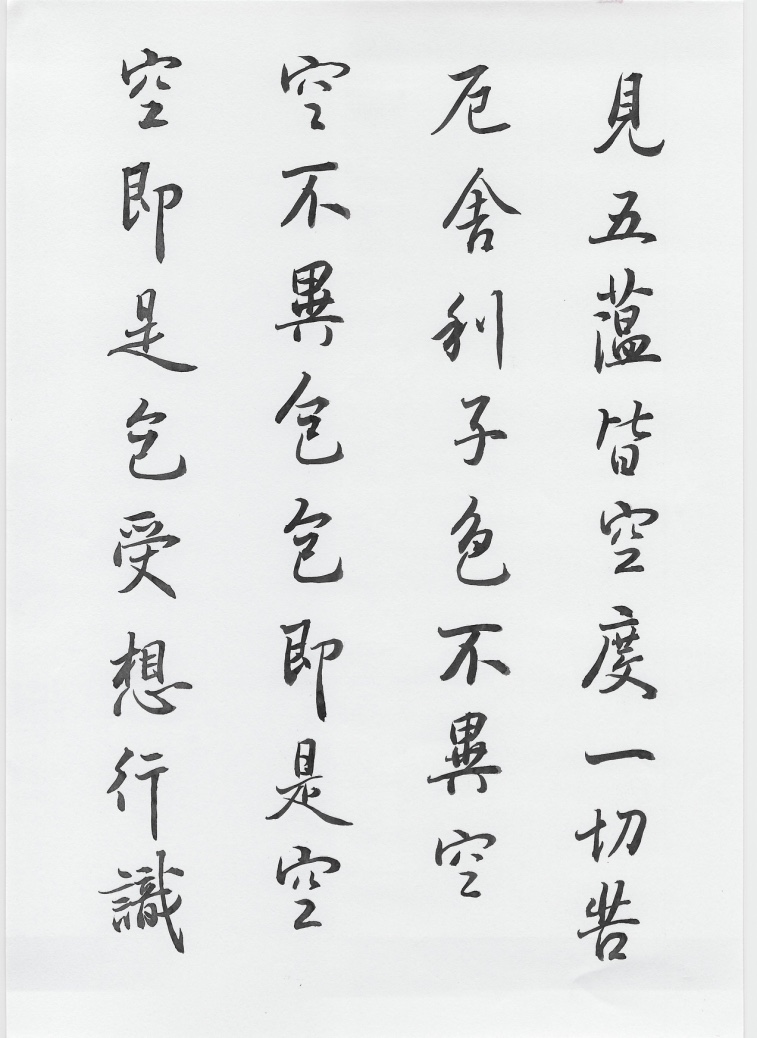 見五蘊皆空度一切苦
厄舍利子色不異空
空不異色色即是空
空即是色受想行識